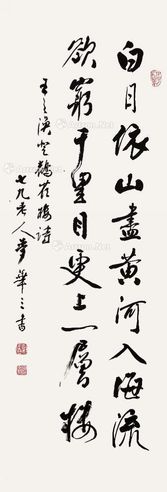 白日依山盡黃河入海流
欲窮千里目更上一層樓
王之渙登鸛雀樓詩
七九老人夢華書